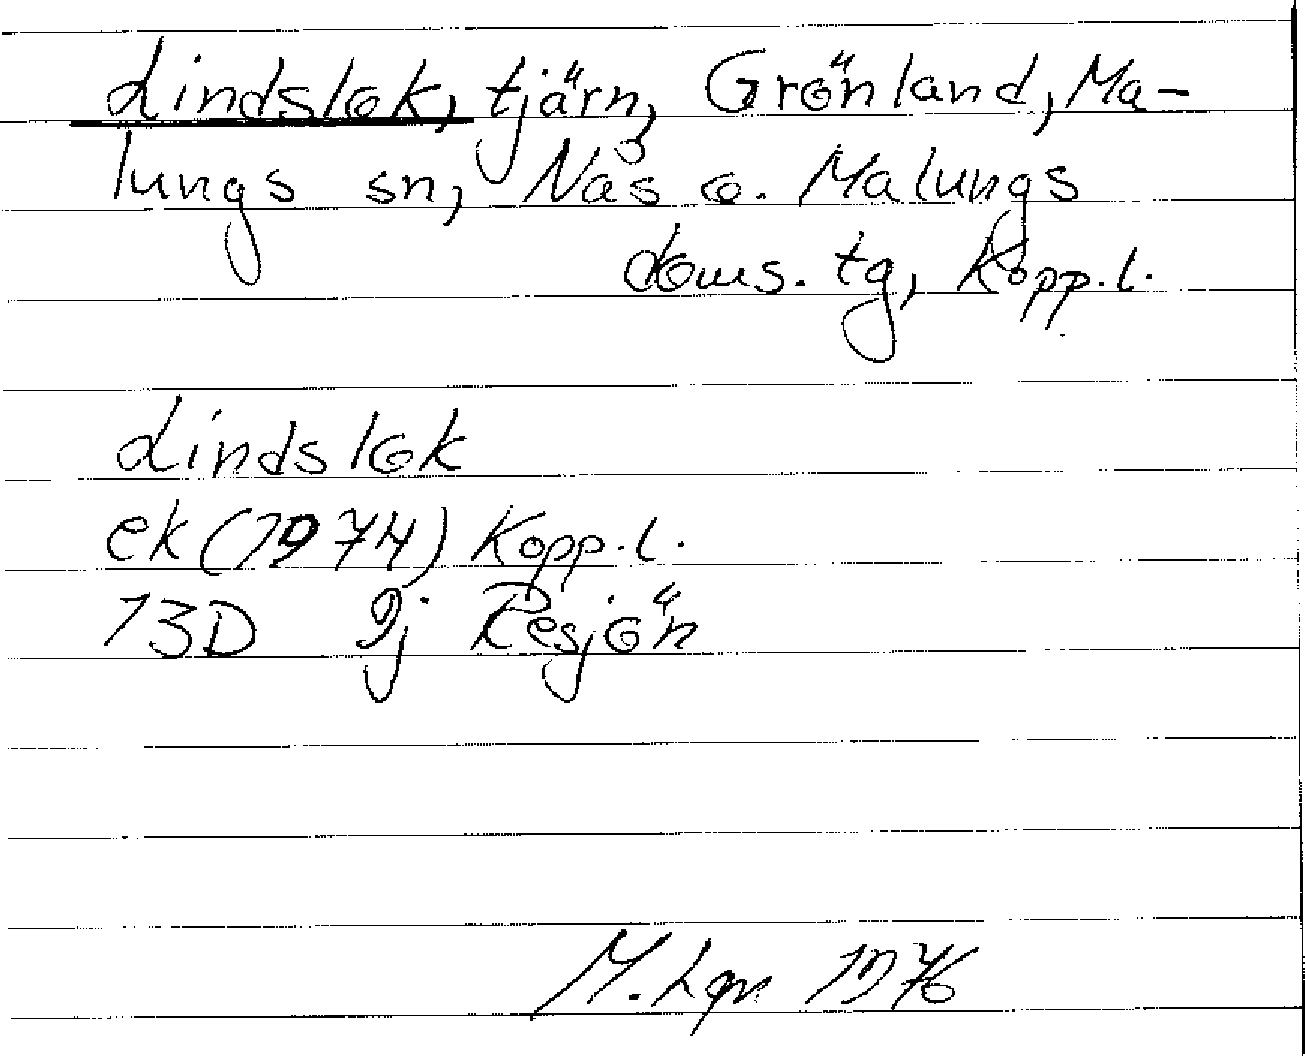 Lindslok, tjärn, Grönland, Ma-
lungs sn, Nås o. Malungs
doms. tg, Kopp.l.
Lindslok
ek (1974) Kopp.l.
13D 9j Resjön
M. Lgn 1976